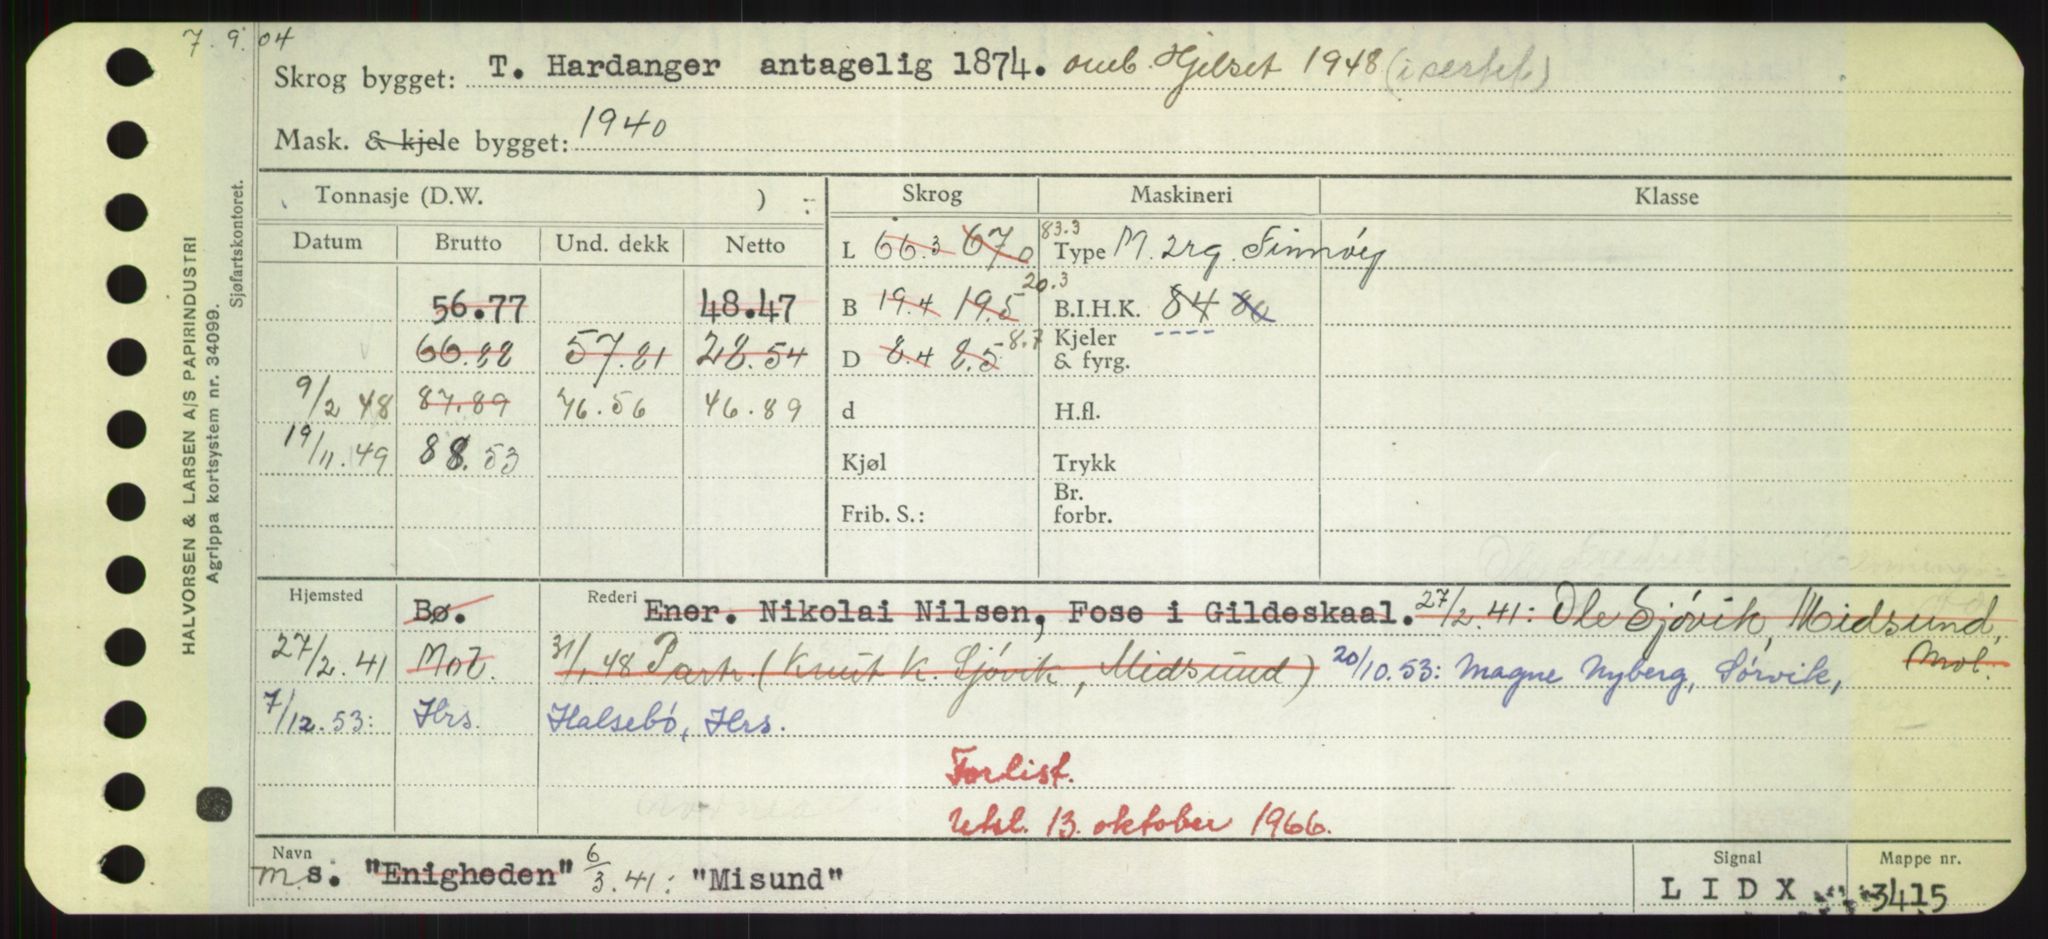 7.9.04
Skrog bygget: T. Hardanger antagelig 1874. omb. Hjelset 1948
Mask. & kjele bygget: 1940
Tonnasje (D.W. )
Skrog Maskineri Klasse
Datum Brutto Und. dekk Netto
L 66.3 67.0 83.3 Type M. 2rg. Finnöy
56.77 48.47
B 19.4 19.5 20.3 B.I.H.K. 84 80
66.88 57.81 28.54
D 8.4 8.5 8.7 Kjeler & fyrg.
9/2 48 87.89 76.56 46.89
d H.fl.
19/11.49 88.53
Kjøl Trykk
Frib. S.: Br. forbr.
Hjemsted Bø. Rederi Ener. Nikolai Nilsen, Fose i Gildeskaal. 27/2.41: Ole Sjövik, Midsund, Mol.
27/2.41 Mol. 31/1.48 Partr. (Knut K. Sjövik, Midsund) 20/10.53: Magne Nyberg, Sörvik,
7/12.53: Hrs. Halsebö, Hrs.
Forlist.
Utsl. 13. oktober 1966.
Navn Signal Mappe nr.
m.s. "Enigheden" 6/3.41: "Misund" LIDX 3415
HALVORSEN & LARSEN A/S PAPIRINDUSTRI
Agrippa kortsystem nr. 34099.
Sjøfartskontoret.